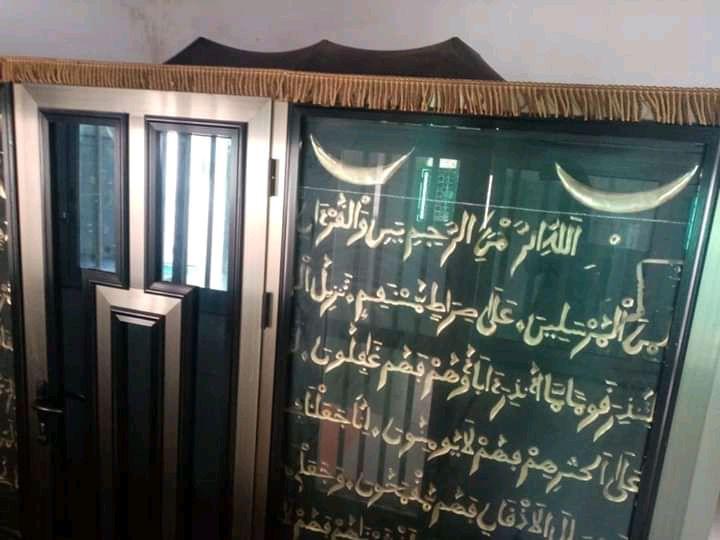 اللَّهِ الرَّحْمَنِ الرَّحِيمِ يَسِ وَالْقُرْءَا
لَمِنَ الْمُرْسَلِينَ عَلَى صِرَاطٍ مُسْتَقِيمٍ تَنزِيلَ
لِتُنذِرَ قَوْمًا مَا أُنذِرَ ءَابَاؤُهُمْ فَهُمْ غَافِلُونَ
عَلَى أَكْثَرِهِمْ فَهُمْ لَا يُومِنُونَ إِنَّا جَعَلْنَا
إِلَى الْأَذْقَانِ فَهُم مُقْمَحُونَ وَجَعَلْ